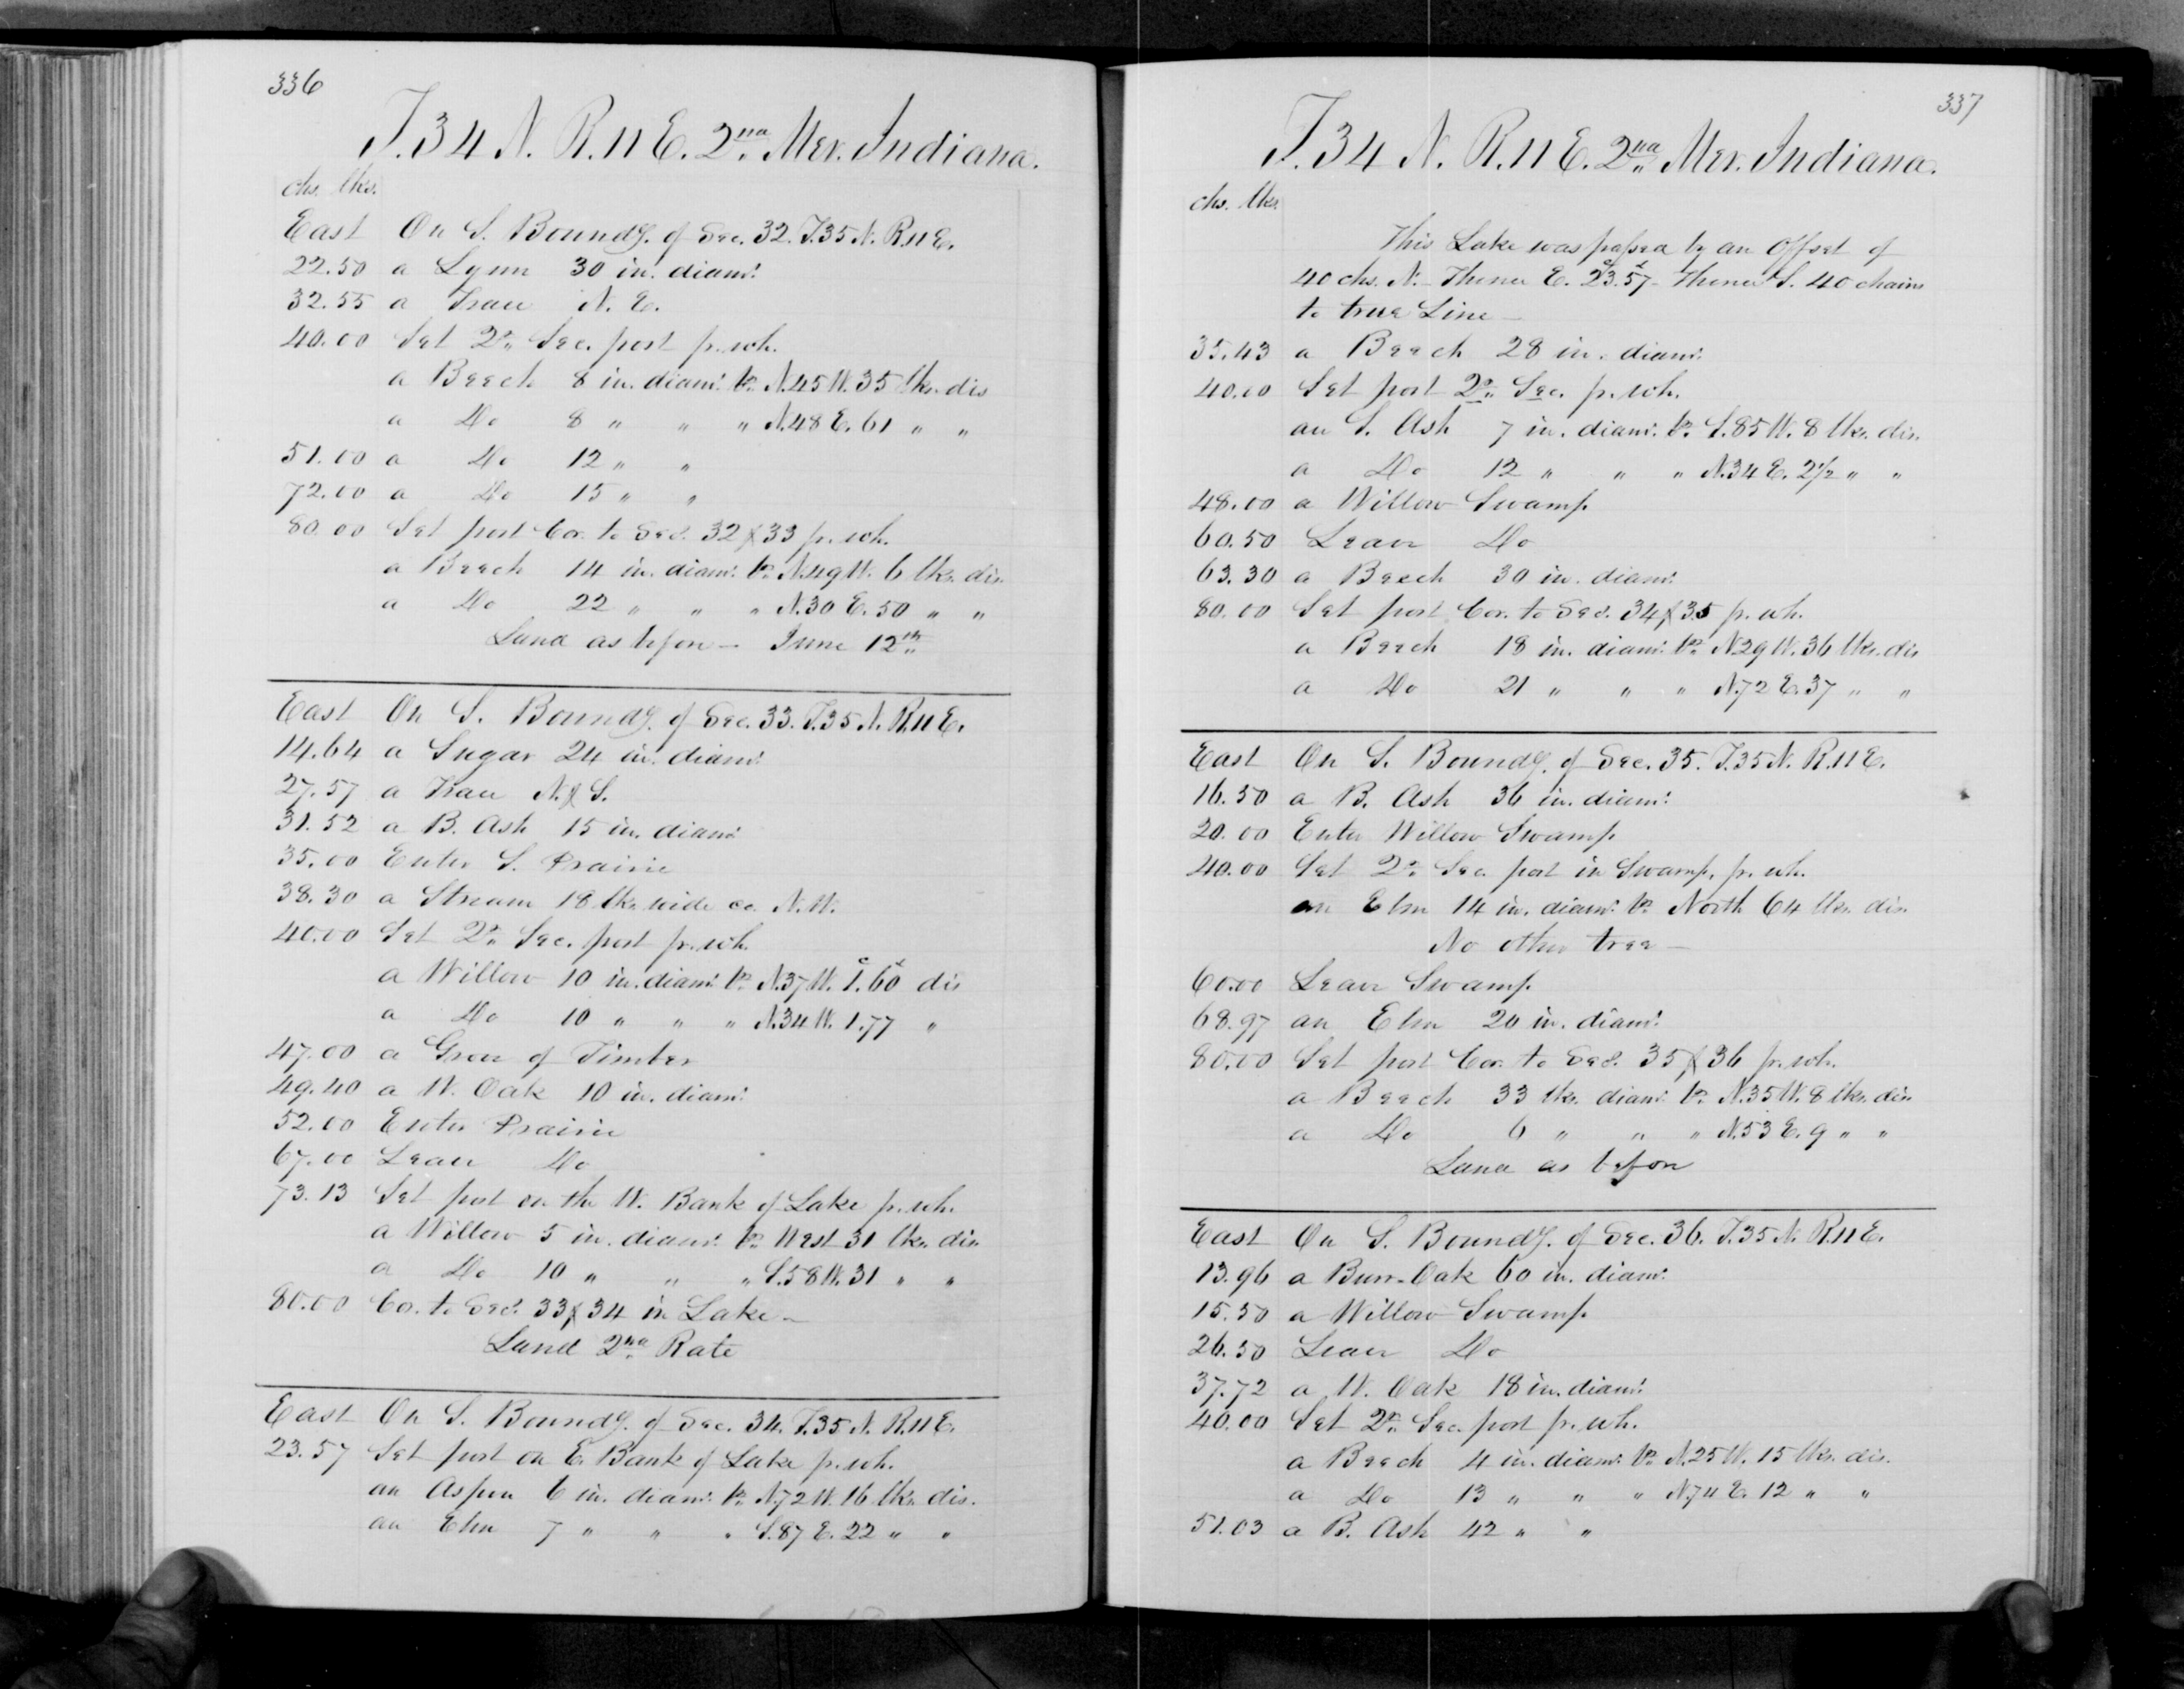 336
T. 34 N. R. 11 E. 2nd Mer. Indiana.
chs. lks.
East On S. Boundy. of Sec. 32. T. 35 N. R. 11 E.
22.50 a Lynn 30 in. diamr.
32.55 a Trace N. E.
40.00 Set Qr. Sec. post fr. wh.
a Beech 8 in. diamr. br. N. 45 W. 35 lks. dis
a Do 8 " " " N. 48 E. 61 " "
51.00 a Do 12 " "
72.00 a Do 15 " "
80.00 Set post Cor. to Secs. 32 & 33 fr. wh.
a Beech 14 in. diamr. br. N. 49 W. 6 lks. dis.
a Do 22 " " " N. 30 E. 50 " "
Land as before - June 12th
East On S. Boundy. of Sec. 33. T. 35 N. R. 11 E.
14.64 a Sugar 24 in. diamr.
27.57 a Trace N. & S.
31.52 a B. Ash 15 in. diamr
35.00 Enter S. Prairie
38.30 a Stream 18 lks. wide co. N. W.
40.00 Set Qr. Sec. post fr. wh.
a Willow 10 in. diamr. br. N. 37 W. 1.c 60l dis
a Do 10 " " " N. 34 W. 1.77 "
47.00 a Grove of Timber
49.40 a W. Oak 10 in. diamr.
52.00 Enter Prairie
67.00 Leave Do
73.13 Set post on the W. Bank of Lake fr. wh.
a Willow 5 in. diamr. br. West 31 lks. dis
a Do 10 " " " S. 58 W. 31 " "
80.00 Co. to Secs. 33 & 34 in Lake -
Land 2nd Rate
East On S. Boundy. of Sec. 34. T. 35 N. R. 11 E.
23.57 Set post on E. Bank of Lake fr. wh.
an Aspen 6 in. diamr. br. N. 72 W. 16 lks. dis.
an Elm 7 " " " S. 87 E. 22 " "
337
T. 34 N. R. 11 E. 2nd Mer. Indiana.
chs. lks.
This Lake was passed by an Offset of
40 chs. N. - Thence E. 23.c 57l - thence S. 40 chains
to true Line -
35.43 a Beech 28 in. diamr.
40.00 Set post Qr. Sec. fr. wh.
an S. Ash 7 in. diamr. br. S. 85 W. 8 lks. dis.
a Do 12 " " " N. 34 E. 2½ " "
48.00 a Willow Swamp
60.50 Leave Do
63.30 a Beech 30 in. diamr.
80.00 Set post Cor. to Secs. 34 & 35 fr. wh.
a Beech 18 in. diamr. br. N. 29 W. 36 lks. dis
a Do 21 " " " N. 72 E. 37 " "
East On S. Boundy. of Sec. 35. T. 35 N. R. 11 E.
16.50 a B. Ash 36 in. diamr.
20.00 Enter Willow Swamp
40.00 Set Qr. Sec. post in Swamp, fr. wh.
an Elm 14 in. diamr. br. North 64 lks. dis.
No other tree -
60.00 Leave Swamp.
68.97 an Elm 20 in. diamr.
80.00 Set post Cor. to Secs. 35 & 36 fr. wh.
a Beech 33 lks. diamr. br. N. 35 W. 8 lks. dis.
a Do 6 " " " N. 53 E. 9 " "
Land as before
East On S. Boundy. of Sec. 36. T. 35 N. R. 11 E.
13.96 a Burr-Oak 60 in. diamr.
15.50 a Willow Swamp.
26.50 Leave Do
37.72 a W. Oak 18 in. diamr.
40.00 Set Qr. Sec. post fr. wh.
a Beech 4 in. diamr. br. N. 25 W. 15 lks. dis.
a Do 13 " " " N. 74 E. 12 " "
51.03 a B. Ash 42 " "